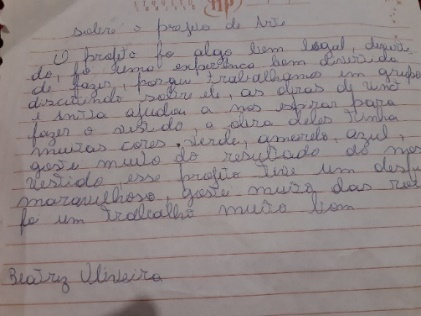 sobre o projeto de Arte
O projeto foi algo bem legal, diverti
do, foi uma experiencia bem divertida
de fazer, porque trabalhamos em grupo
discutindo sobre ele, as obras de
e ajudou a nos espirar para
fazer o vestido, a obra deles tinha
muitas cores, verde, amarelo, azul,
gostei muito do resultado do nosso
vestido esse projeto teve um
maravilhoso, gostei muito das
foi um trabalho muito bom
Beatriz Oliveira